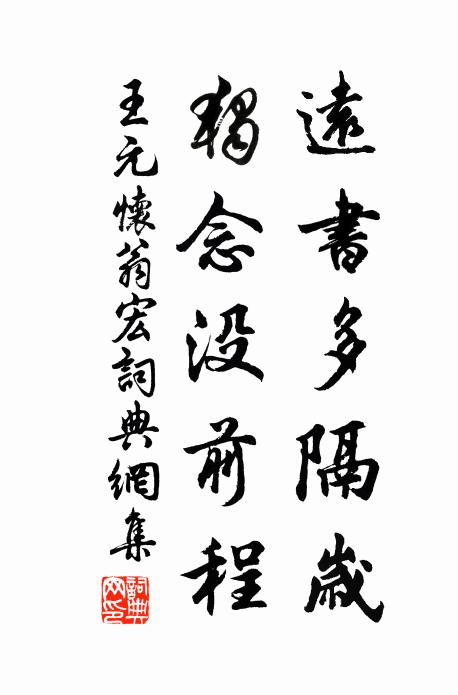 遠書多隔歲
獨念没前程
王元懷翁宏詞典網集
詞典網印